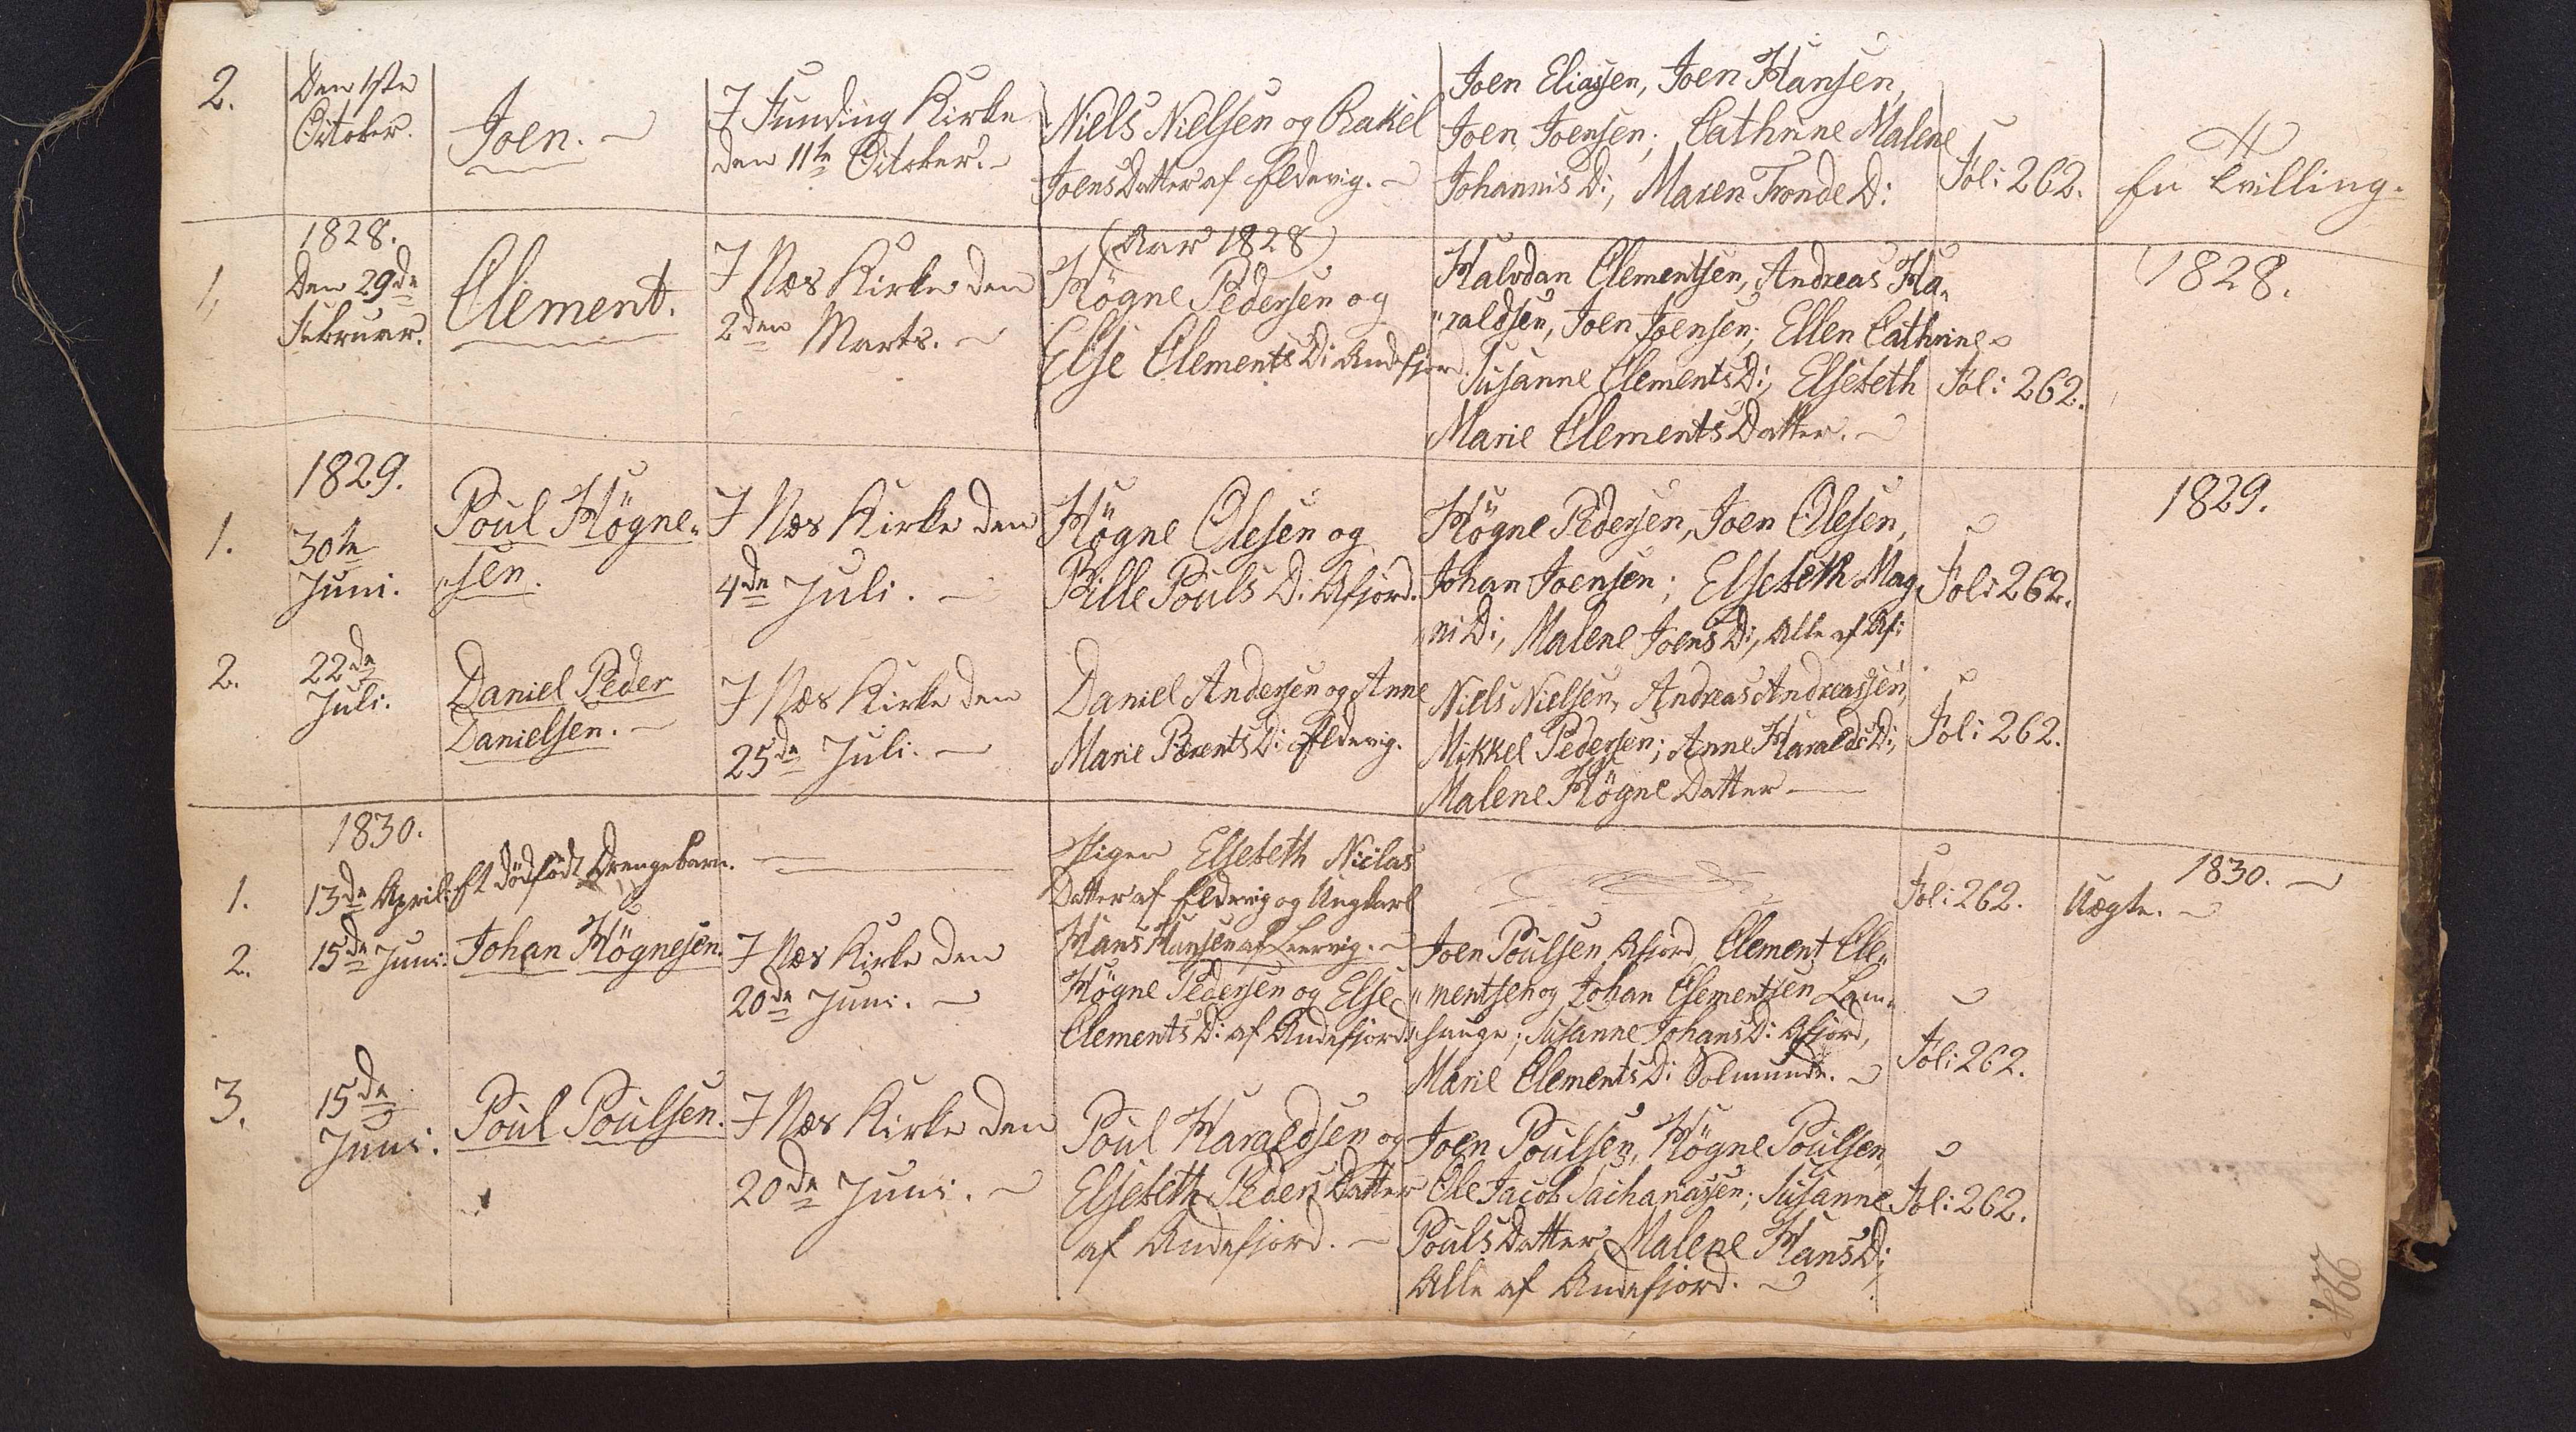 2.
Den 1ste
October.
Joen.
I Funding Kirke
den 11te October.
Niels Nielsen og Rakel
Joens Datter af Eldevig.
Joen Eliassen, Joen Hansen,
Joen Joensen; Cathrine Malene
Johannis D:, Maren Tronde D:
Fol: 262.
En Tvilling.
1.
1828.
Den 29de
Februar.
Clement.
I Næs Kirke den
2den Marts.
(Aar 1828)
Högne Pedersen og
Else Clements D: Andefjord.
Halvdan Clementsen, Andreas Ha„
„raldsen, Joen Joensen; Ellen Cathrine
Susanne Clements D:, Elsebeth
Marie Clements Datter.
Fol: 262.
1828.
1.
1829.
30te
Juni.
Poul Högne„
„sen.
I Næs Kirke den
4de Juli.
Högne Olesen og
Bille Pouls D: Afjord.
Högne Pedersen, Joen Olesen,
Johan Joensen; Elsebeth Mag
„ni D:, Malene Joens D:, Alle af Af:
Fol: 262.
1829.
2.
22de
Juli.
Daniel Peder
Danielsen.
I Næs Kirke den
25de Juli.
Daniel Andersen og Anne
Marie Berents D: Eldevig.
Niels Nielsen, Andreas Andreassen,
Mikkel Pedersen; Anne Haralds D:,
Malene Högne Datter
Fol: 262.
1830.
1.
13de April.
Et dödfödt Drengebarn.
Pigen Elsebeth Niclas
Datter af Eldevig og Ungkarl
Hans Hansen af Leervig.
Fol: 262.
1830.
Uægte.
2.
15de Juni.
Johan Högnesen.
I Næs Kirke den
20de Juni.
Högne Pedersen og Else
Clements D: af Andefjord.
Joen Poulsen Afjord, Clement Cle„
„mentsen og Johan Clementsen Lam„
„hauge; Susanne Johans D: Afjord,
Marie Clements D: Solmunde.
Fol: 262.
3.
15de
Juni.
Poul Poulsen.
I Næs Kirke den
20de Juni.
Poul Haraldsen og
Elsebeth Peders Datter
af Andefjord.
Joen Poulsen, Högne Poulsen
Ole Jacob Sachariasen; Susanne
Pouls Datter, Malene Hans D:,
Alle af Andefjord.
Fol: 262.